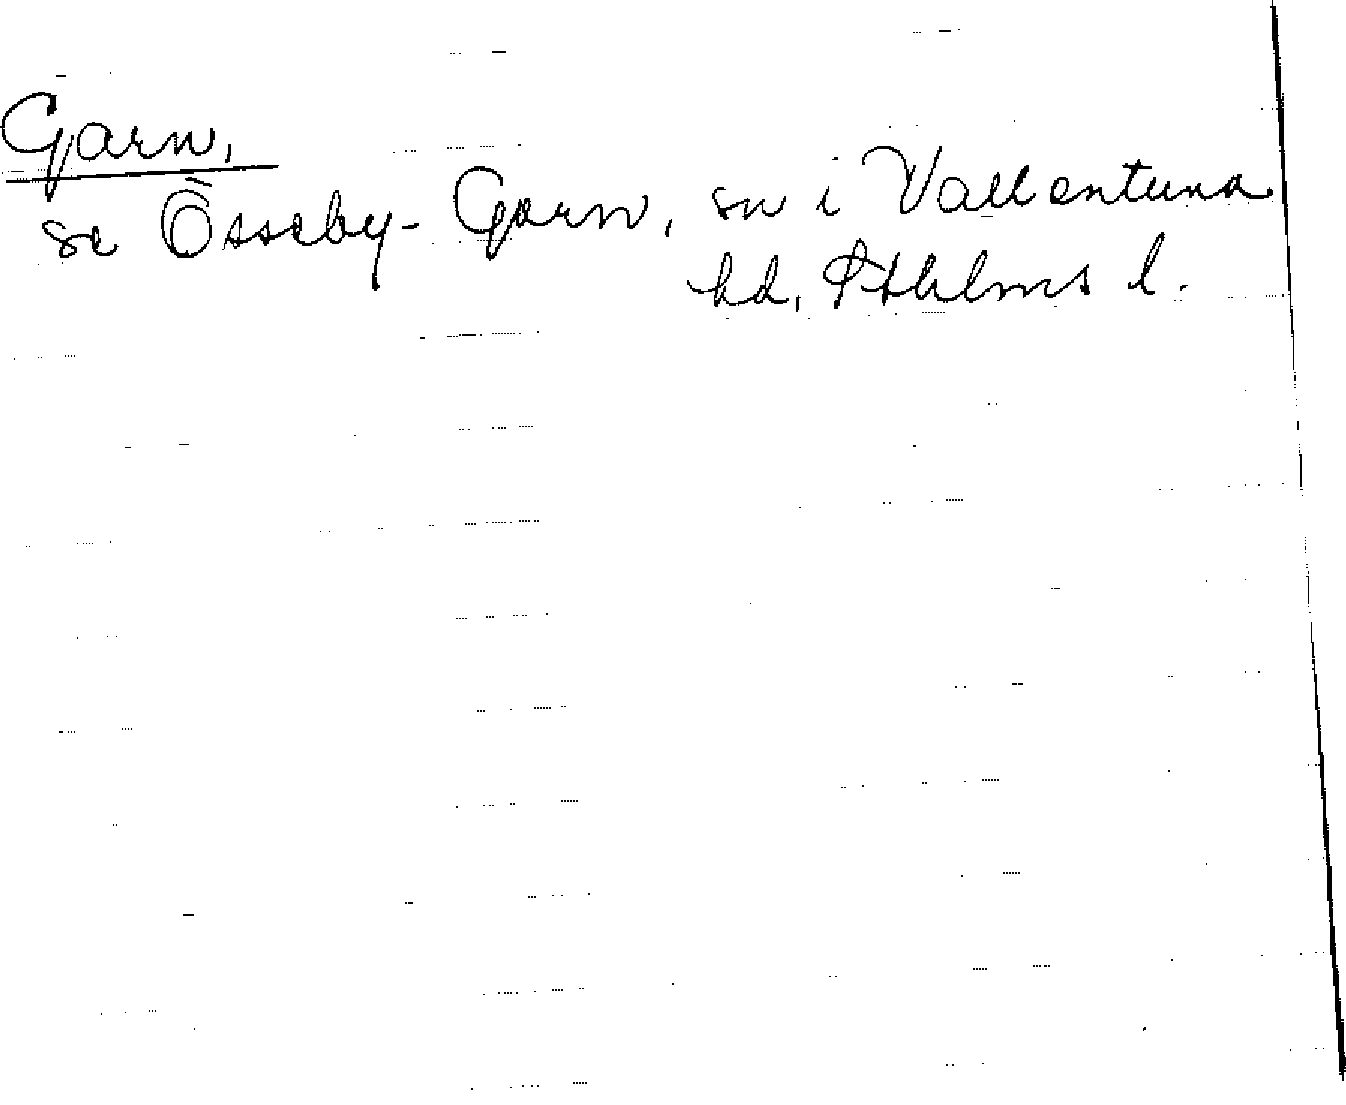 Garn,
se Össeby-Garn, sn i Vallentuna
hd, Sthlms l.